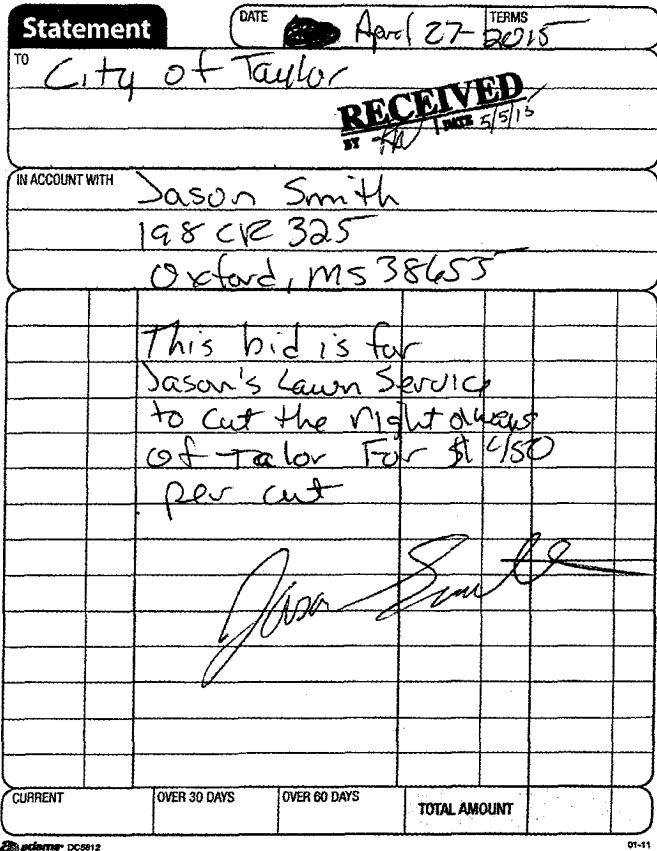 Statement
DATE April 27- 2015 TERMS
TO City of Taylor
RECEIVED
BY DATE 5/5/15
IN ACCOUNT WITH Jason Smith
198 CR 325
Oxford, MS 38655
This bid is for
Jason's Lawn Service
to cut the right aways
of Talor For $ 450
per cut
Jason Smith
CURRENT OVER 30 DAYS OVER 60 DAYS TOTAL AMOUNT
adams DC5812 01-11